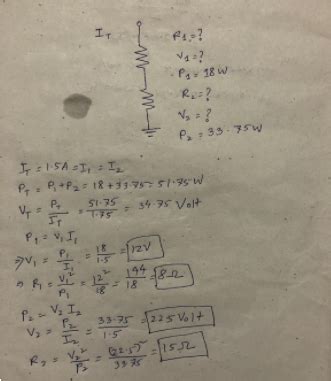 I_T
R₁ = ?
V₁ = ?
P₁ = 18W
R₂ = ?
V₂ = ?
P₂ = 33.75W
I_T = 1.5A = I₁ = I₂
P_T = P₁ + P₂ = 18 + 33.75 = 51.75 W
V_T = P_T / I_T = 51.75 / 1.75 = 34.75 Volt
P₁ = V₁ I₁
⇒ V₁ = P₁ / I₁ = 18 / 1.5 = 12V
⇒ R₁ = V₁² / P₁ = 12² / 18 = 144 / 18 = 8Ω
P₂ = V₂ I₂
V₂ = P₂ / I₂ = 33.75 / 1.5 = 22.5 Volt
R₂ = V₂² / P₂ = (22.5)² / 33.75 = 15Ω